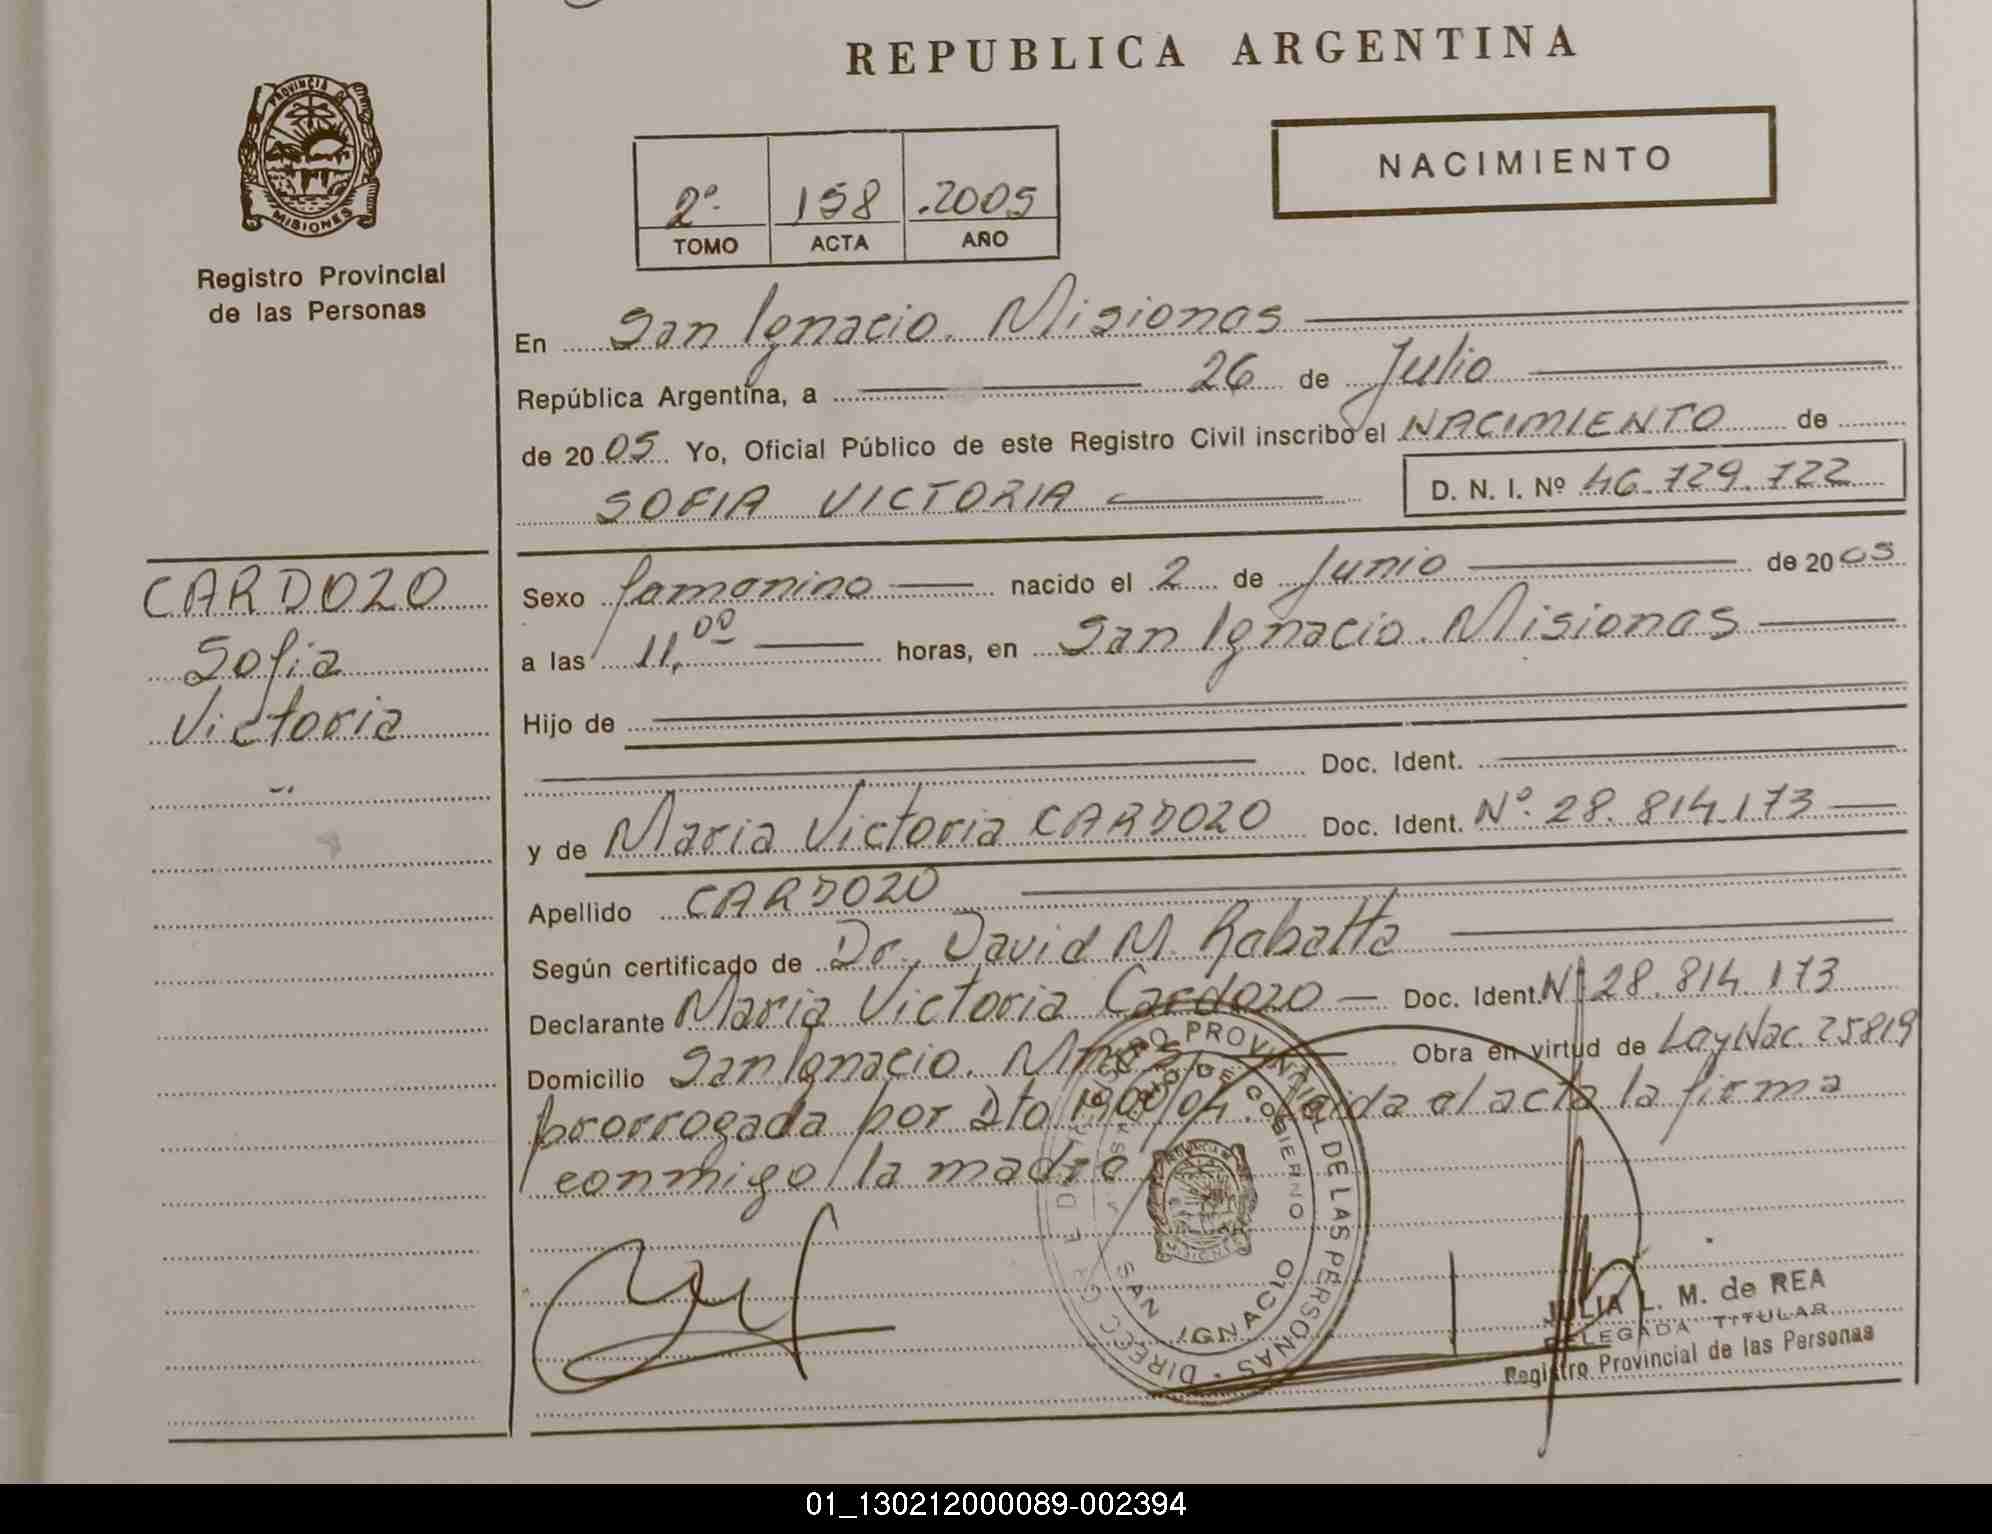 REPUBLICA ARGENTINA
PROVINCIA DE
MISIONES
Registro Provincial
de las Personas
NACIMIENTO
2º 158 2005
TOMO ACTA AÑO
En San Ignacio. Misiones
República Argentina, a 26 de Julio
de 20 05 Yo, Oficial Público de este Registro Civil inscribo el NACIMIENTO de
SOFIA VICTORIA D. N. I. Nº 46.729.722
CARDOZO
Sofia
Victoria
Sexo femenino nacido el 2 de Junio de 20 05
a las 11,00 horas, en San Ignacio. Misiones
Hijo de
Doc. Ident.
y de Maria Victoria CARDOZO Doc. Ident. Nº. 28.814.173
Apellido CARDOZO
Según certificado de Dr. David M. Rabatta
Declarante Maria Victoria Cardozo Doc. Ident. Nº 28.814.173
Domicilio San Ignacio. Mnes. Obra en virtud de Ley Nac. 25819
prorrogada por Dto 1900/04. Leida el acta la firma
conmigo la madre
REGISTRO PROVINCIAL DE LAS PERSONAS
DE GOBIERNO
SAN IGNACIO
JULIA L. M. de REA
DELEGADA TITULAR
Registro Provincial de las Personas
01_130212000089-002394